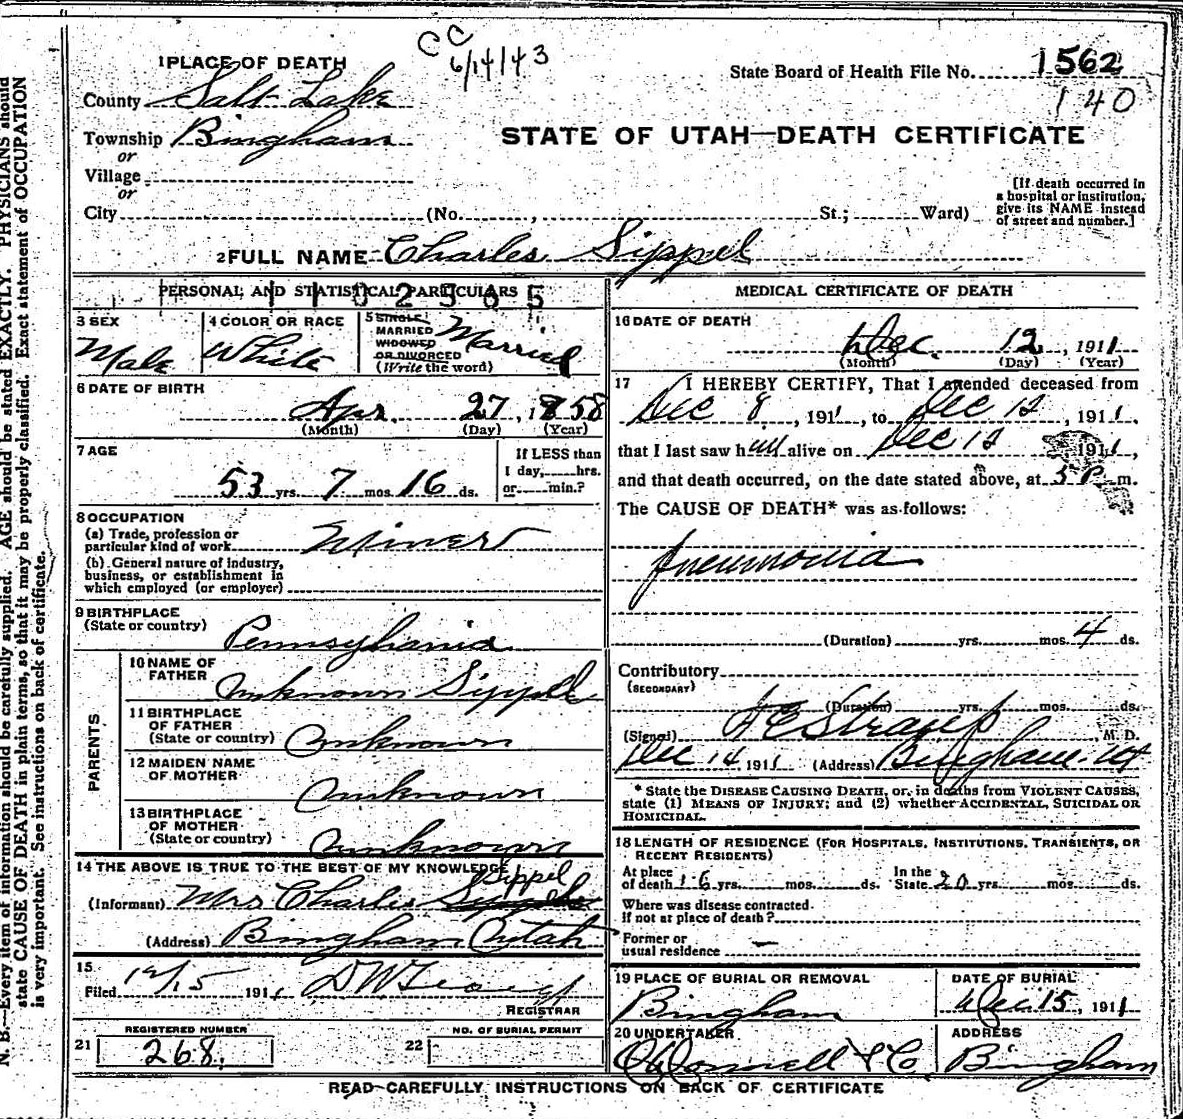 CC
6/14/43
1 PLACE OF DEATH
State Board of Health File No. 1562
140
County Salt Lake
Township Bingham
or
Village
or
City (No. , St.; Ward)
STATE OF UTAH—DEATH CERTIFICATE
[If death occurred in
a hospital or institution,
give its NAME instead
of street and number.]
2 FULL NAME Charles Sippel
PERSONAL AND STATISTICAL PARTICULARS
3 SEX
Male
4 COLOR OR RACE
White
5 SINGLE,
MARRIED
WIDOWED
OR DIVORCED
(Write the word)
Married
6 DATE OF BIRTH
Apr. 27, 1858
(Month) (Day) (Year)
7 AGE
53 yrs. 7 mos. 16 ds.
If LESS than
1 day, hrs.
or min.?
8 OCCUPATION
(a) Trade, profession or
particular kind of work Miner
(b) General nature of industry,
business, or establishment in
which employed (or employer)
9 BIRTHPLACE
(State or country)
Pennsylvania
PARENTS
10 NAME OF
FATHER
Unknown Sippel
11 BIRTHPLACE
OF FATHER
(State or country) Unknown
12 MAIDEN NAME
OF MOTHER
Unknown
13 BIRTHPLACE
OF MOTHER
(State or country) Unknown
14 THE ABOVE IS TRUE TO THE BEST OF MY KNOWLEDGE
Sippel
(Informant) Mrs Charles
(Address) Bingham Utah
15
Filed 12/15 1911
REGISTRAR
REGISTERED NUMBER
21 268.
NO. OF BURIAL PERMIT
22
MEDICAL CERTIFICATE OF DEATH
16 DATE OF DEATH
Dec. 12, 1911
(Month) (Day) (Year)
17 I HEREBY CERTIFY, That I attended deceased from
Dec 8, 1911, to Dec 12, 1911,
that I last saw him alive on Dec 12 1911,
and that death occurred, on the date stated above, at 5 P. m.
The CAUSE OF DEATH* was as follows:
Pneumonia
(Duration) yrs. mos. 4 ds.
Contributory
(SECONDARY)
(Duration) yrs. mos. ds.
(Signed) Straup, M. D.
Dec 14, 1911 (Address) Bingham. Ut
* State the DISEASE CAUSING DEATH, or, in deaths from VIOLENT CAUSES,
state (1) MEANS OF INJURY; and (2) whether ACCIDENTAL, SUICIDAL OR
HOMICIDAL.
18 LENGTH OF RESIDENCE (FOR HOSPITALS, INSTITUTIONS, TRANSIENTS, OR
RECENT RESIDENTS)
At place
of death 16 yrs. mos. ds.
In the
State 20 yrs. mos. ds.
Where was disease contracted
if not at place of death?
Former or
usual residence —
19 PLACE OF BURIAL OR REMOVAL
Bingham
DATE OF BURIAL
Dec 15, 1911
20 UNDERTAKER
O'Donnell & Co.
ADDRESS
Bingham
READ CAREFULLY INSTRUCTIONS ON BACK OF CERTIFICATE
N. B.—Every item of information should be carefully supplied. AGE should be stated EXACTLY. PHYSICIANS should
state CAUSE OF DEATH in plain terms, so that it may be properly classified. Exact statement of OCCUPATION
is very important. See instructions on back of certificate.